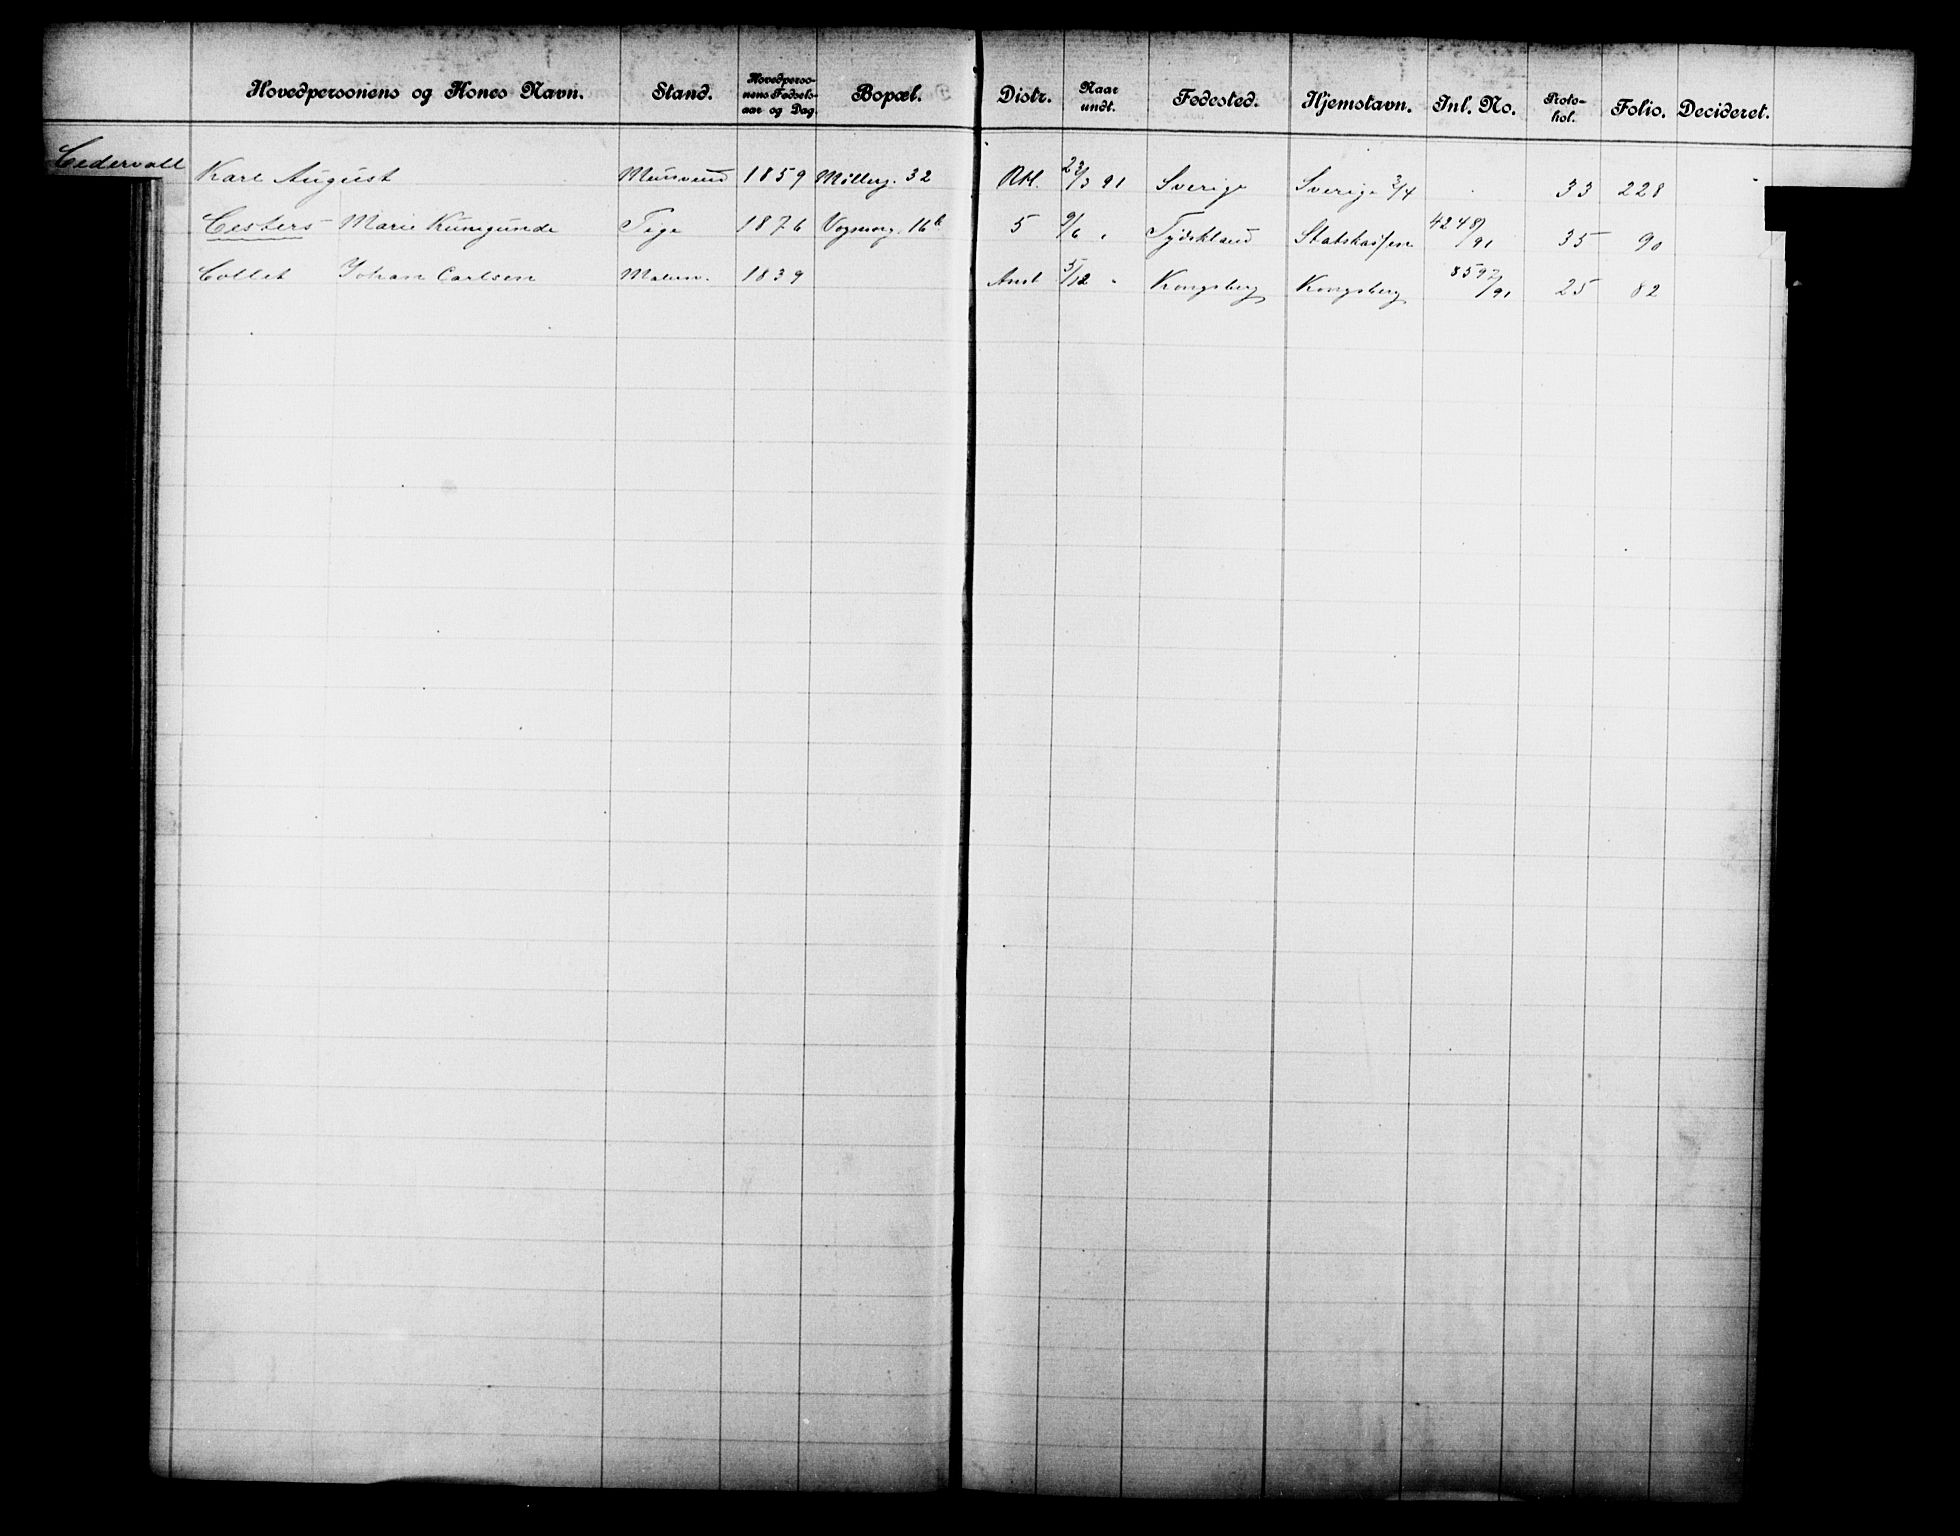 Hovedpersonens og Kones Navn. Stand. Hovedpersonens Fødselsaar og Dag. Bopæl. Distr. Naar undt. Fødested. Hjemstavn. Inl. No. Protokol. Folio. Decideret.
Cedervall Karl August Mursvend 1859 Møllerg. 32 RH. 23/3 91 Sverige Sverige 3/4 33 228
Cesters Marie Kunigunde Pige 1876 Vognmg. 16b 5 9/6 " Tydskland Statskassen 4248/91 35 90
Collet Johan Carlsen Malersv. 1839 Anst 5/12 " Kongsberg Kongsberg 8597/91 25 82